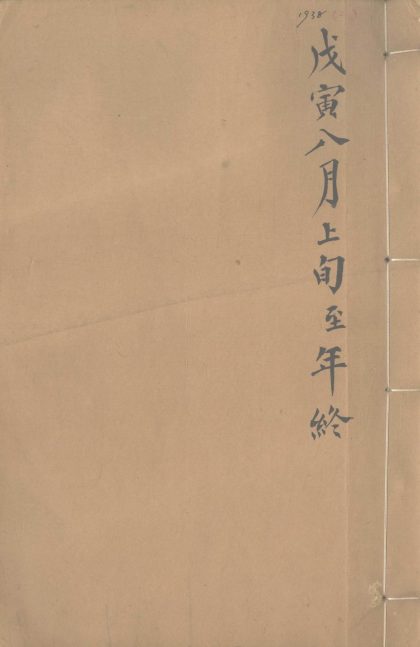 1938
戊寅八月上旬至年終